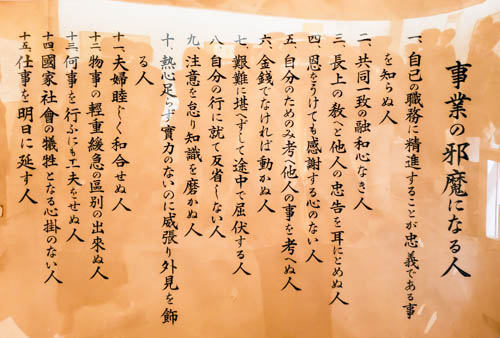 事業の邪魔になる人
一、自己の職務に精進することが忠義である事
を知らぬ人
二、共同一致の融和心なき人
三、長上の教へと他人の忠告を耳にとめぬ人
四、恩をうけても感謝する心のない人
五、自分のためのみ考へ他人の事を考へぬ人
六、金銭でなければ動かぬ人
七、艱難に堪へずして途中で屈伏する人
八、自分の行に就て反省しない人
九、注意を怠り知識を磨かぬ人
十、熱心足らず實力のないのに威張り外見を飾
る人
十一、夫婦睦じく和合せぬ人
十二、物事の軽重緩急の區別の出來ぬ人
十三、何事を行ふにも工夫をせぬ人
十四、國家社會の犠牲となる心掛のない人
十五、仕事を明日に延す人